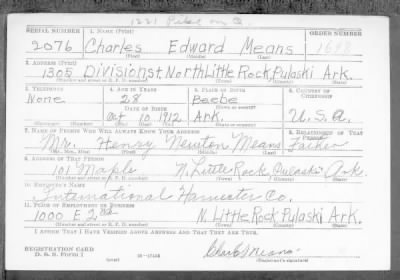 1221 Pike
SERIAL NUMBER 1. NAME (Print) ORDER NUMBER
2076 Charles Edward Means
(First) (Middle) (Last)
2. ADDRESS (Print)
1305 Division st. North Little Rock, Pulaski Ark.
(Number and street or R. F. D. number) (Town) (County) (State)
3. TELEPHONE 4. AGE IN YEARS 5. PLACE OF BIRTH 6. COUNTRY OF CITIZENSHIP
None 28 Beebe
DATE OF BIRTH (Town or county)
Oct 10 1912 Ark. U. S. A
(Mo.) (Day) (Yr.) (State or country)
7. NAME OF PERSON WHO WILL ALWAYS KNOW YOUR ADDRESS 8. RELATIONSHIP OF THAT PERSON
Mr. Henry Newton Means Father
(Mr., Mrs., Miss) (First) (Middle) (Last)
9. ADDRESS OF THAT PERSON
101 Maple N. Little Rock Pulaski Ark.
(Number and street or R. F. D. number) (Town) (County) (State)
10. EMPLOYER'S NAME
International Harvester Co.
11. PLACE OF EMPLOYMENT OR BUSINESS
1000 E. 2nd N. Little Rock Pulaski Ark.
(Number and street or R. F. D. number) (Town) (County) (State)
I AFFIRM THAT I HAVE VERIFIED ABOVE ANSWERS AND THAT THEY ARE TRUE.
REGISTRATION CARD
D. S. S. Form 1 Charles Means
(Registrant's signature)